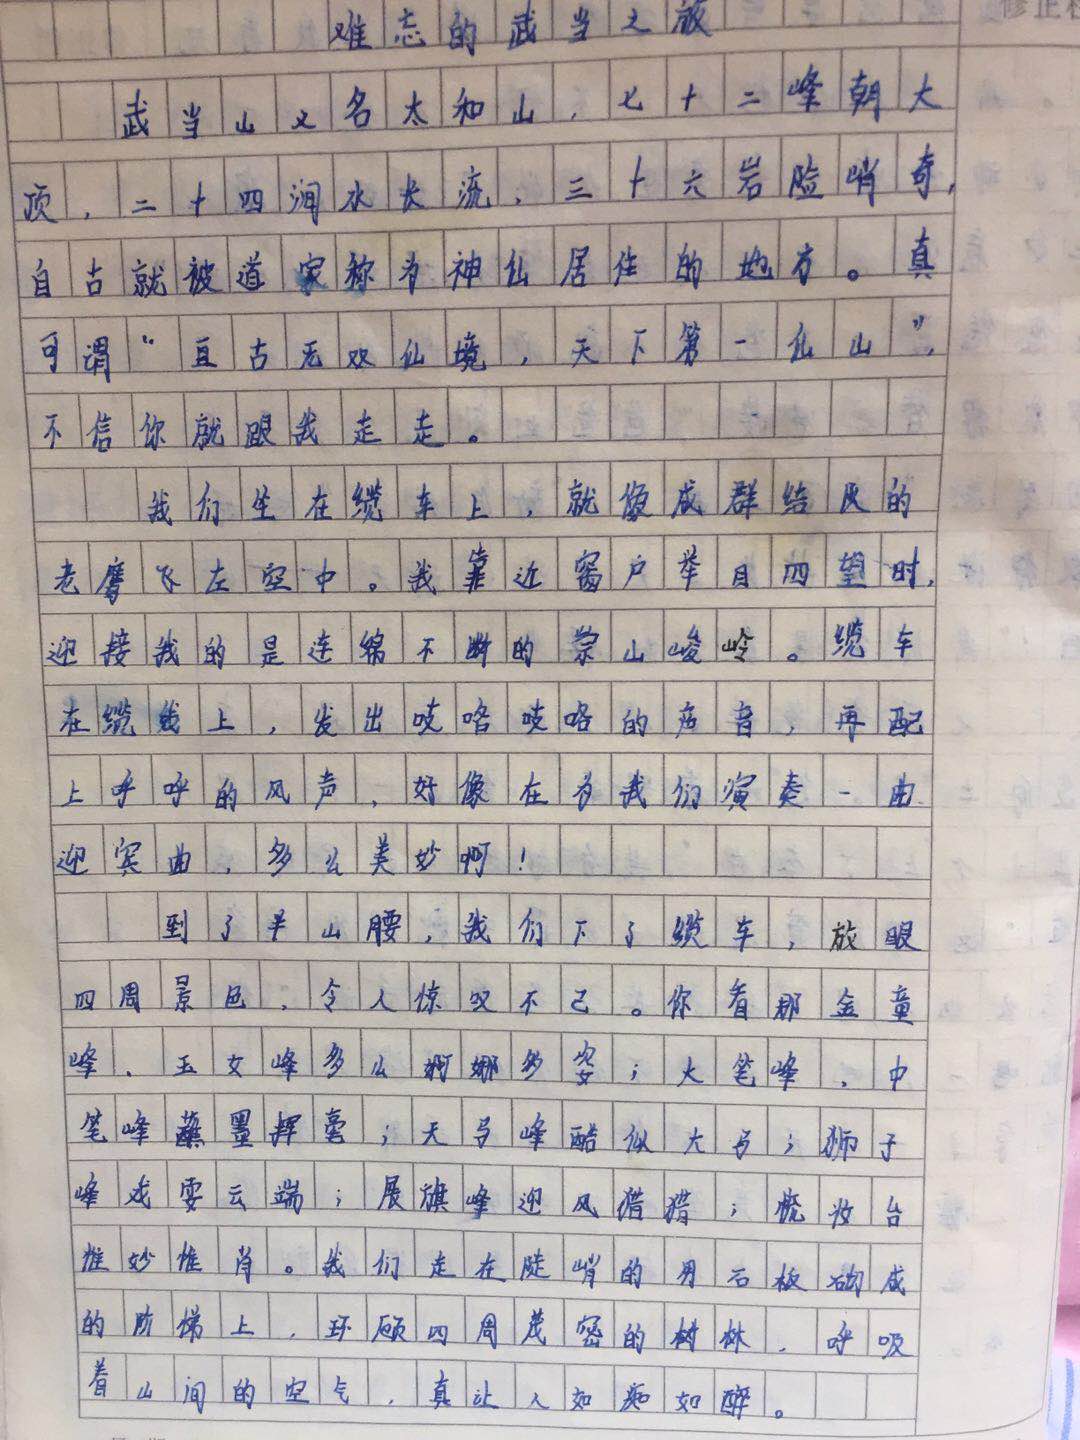 难忘的武当之旅
武当山又名太和山，七十二峰朝大
顶，二十四涧水长流，三十六岩险峭奇，
自古就被道家称为神仙居住的地方。真
可谓“亘古无双仙境，天下第一仙山”，
不信你就跟我走走。
我们坐在缆车上，就像成群结队的
老鹰飞在空中。我靠近窗户举目四望时，
迎接我的是连绵不断的崇山峻岭。缆车
在缆线上，发出吱咯吱咯的声音，再配
上呼呼的风声，好像在为我们演奏一曲
迎宾曲，多么美妙啊！
到了半山腰，我们下了缆车，放眼
四周景色，令人惊叹不已。你看那金童
峰、玉女峰多么婀娜多姿；大笔峰、中
笔峰蘸墨挥毫；天马峰酷似大马；狮子
峰戏耍云端；展旗峰迎风猎猎；梳妆台
惟妙惟肖。我们走在陡峭的用石板砌成
的阶梯上，环顾四周茂密的树林，呼吸
着山间的空气，真让人如痴如醉。